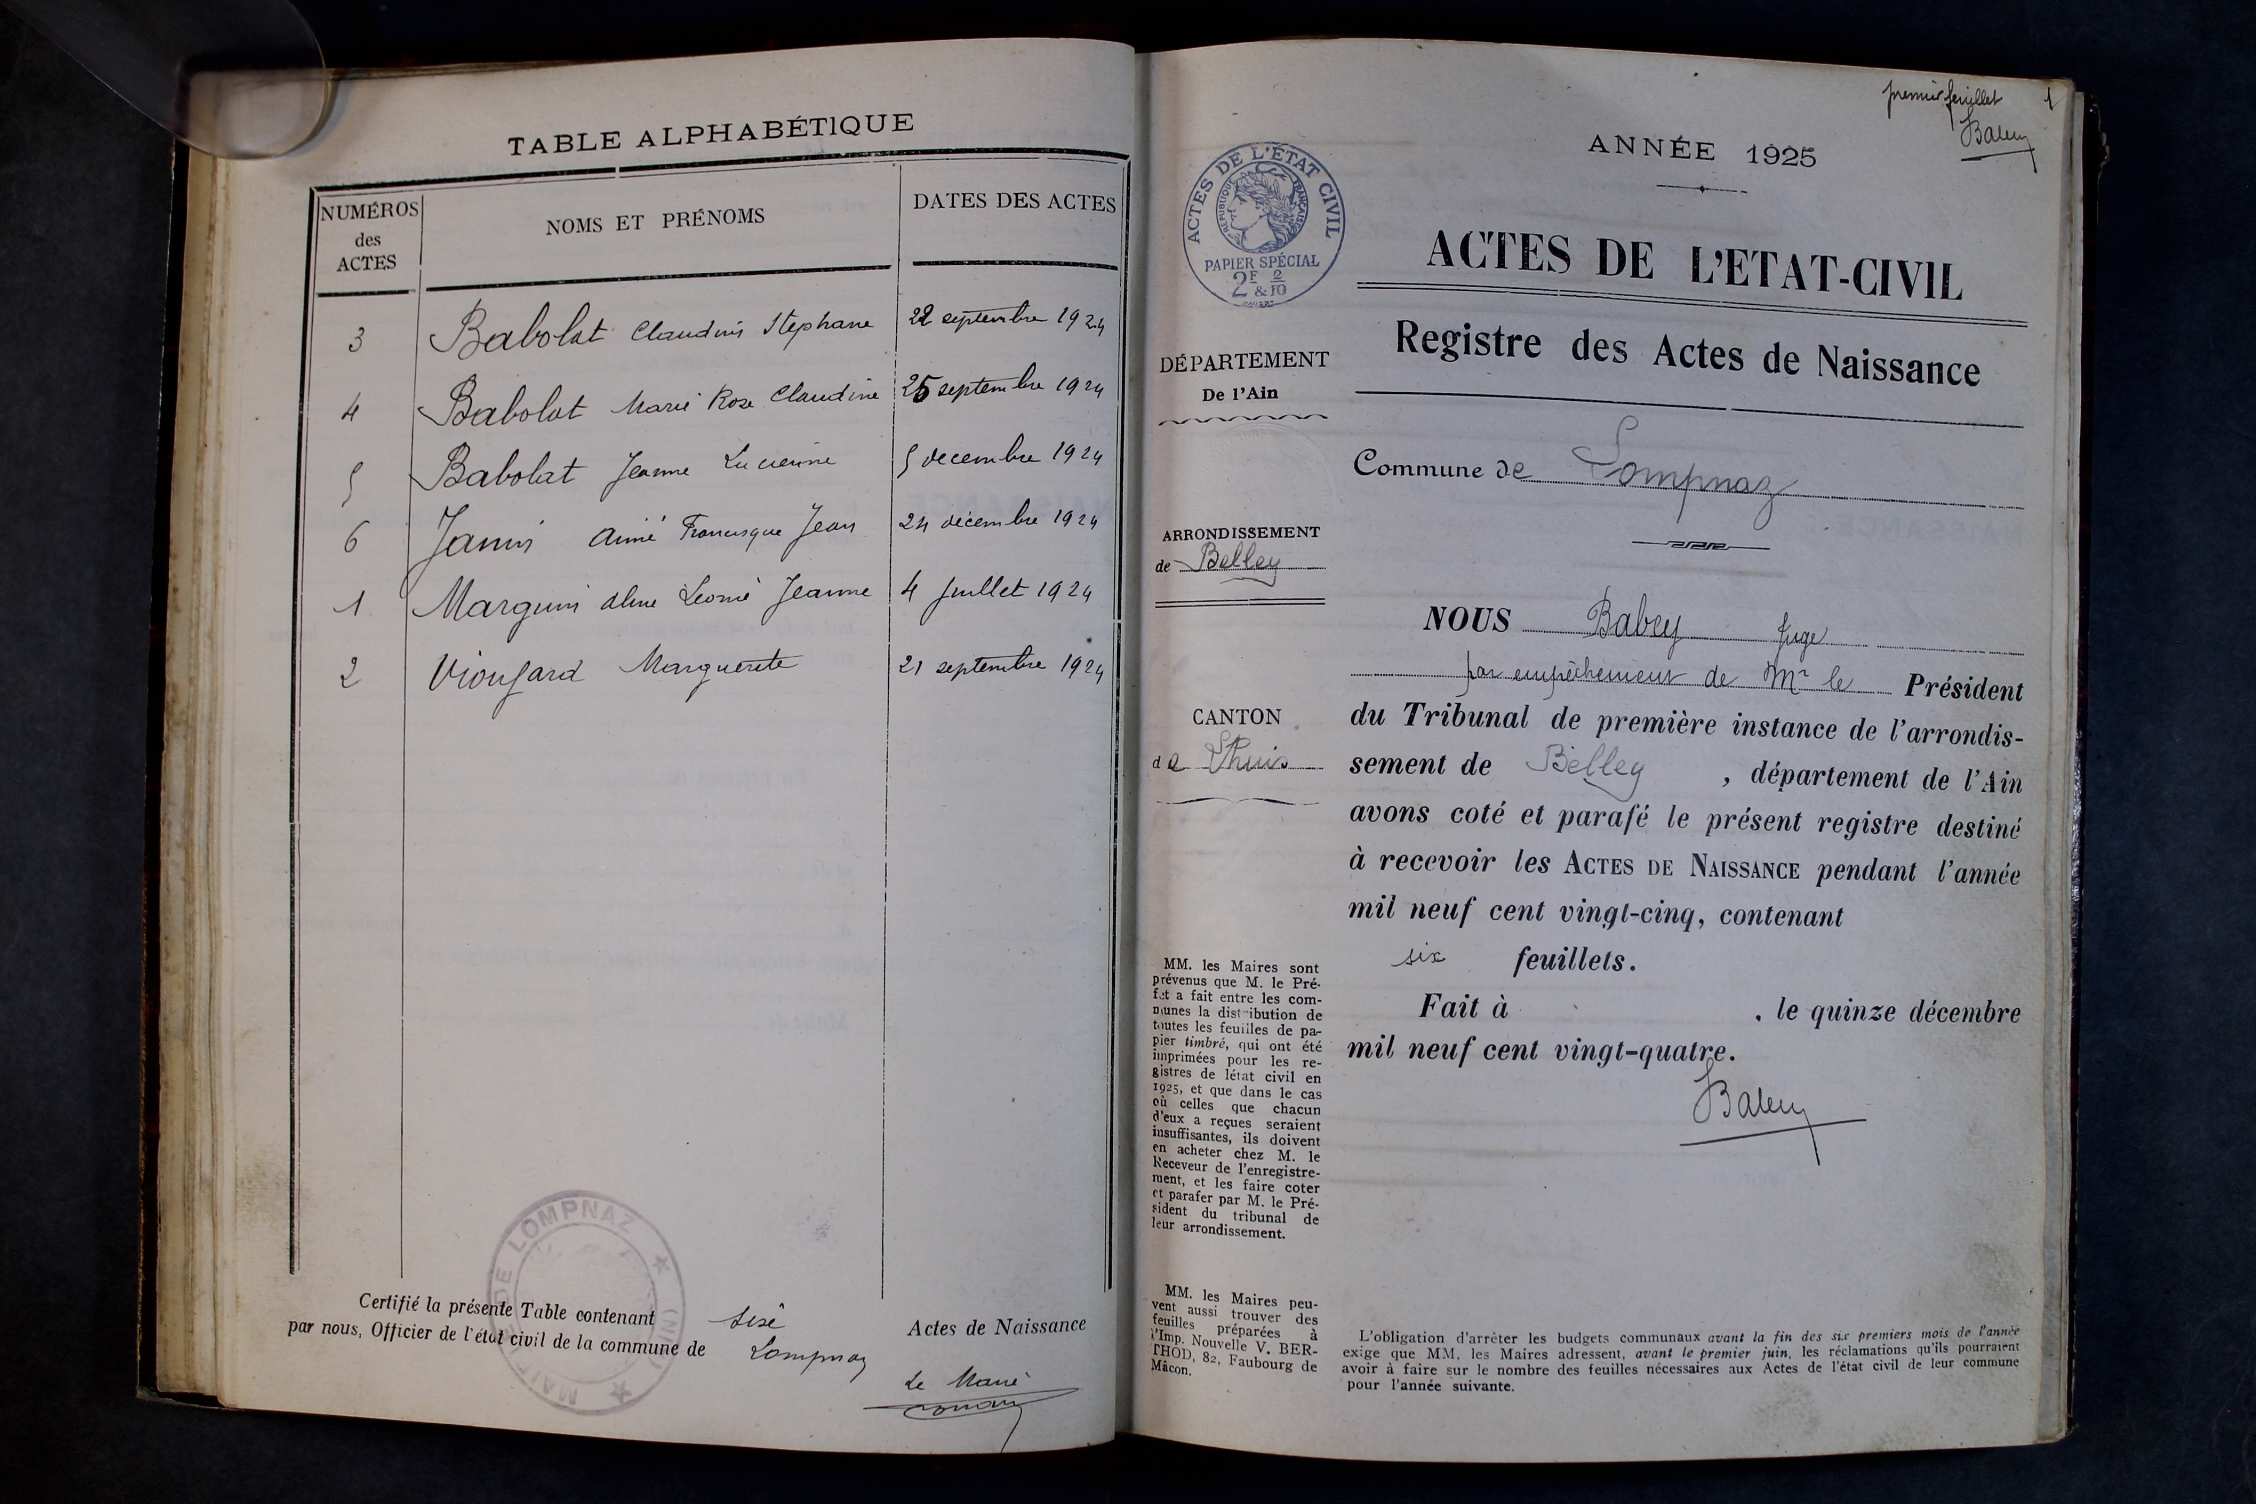 TABLE ALPHABÉTIQUE
NUMÉROS des ACTES
NOMS ET PRÉNOMS
DATES DES ACTES
3 Babolat Claudius Stephane 22 septembre 1924
4 Babolat Marie Rose Claudine 25 septembre 1924
5 Babolat Jeanne Lucienne 5 decembre 1924
6 Janin Aimé Francisque Jean 24 décembre 1924
1 Marguin Aline Leonie Jeanne 4 Juillet 1924
2 Marguerite 21 septembre 1924
Certifié la présente Table contenant six Actes de Naissance
par nous, Officier de l'état civil de la commune de Lompnaz
Le Maire
MAIRIE DE LOMPNAZ (AIN)
premier feuillet 1
Babey
ANNÉE 1925
ACTES DE L'ÉTAT CIVIL
RÉPUBLIQUE FRANÇAISE
PAPIER SPÉCIAL
2F & 2/10
ACTES DE L'ETAT-CIVIL
Registre des Actes de Naissance
DÉPARTEMENT
De l'Ain
Commune de Lompnaz
ARRONDISSEMENT
de Belley
CANTON
de Lhuis
NOUS Babey Juge
par empêchement de Mr le Président
du Tribunal de première instance de l'arrondis-
sement de Belley, département de l'Ain
avons coté et parafé le présent registre destiné
à recevoir les ACTES DE NAISSANCE pendant l'année
mil neuf cent vingt-cinq, contenant
six feuillets.
Fait à , le quinze décembre
mil neuf cent vingt-quatre.
Babey
MM. les Maires sont
prévenus que M. le Pré-
fet a fait entre les com-
munes la distribution de
toutes les feuilles de pa-
pier timbré, qui ont été
imprimées pour les re-
gistres de létat civil en
1925, et que dans le cas
où celles que chacun
d'eux a reçues seraient
insuffisantes, ils doivent
en acheter chez M. le
Receveur de l'enregistre-
ment, et les faire coter
et parafer par M. le Pré-
sident du tribunal de
leur arrondissement.
MM. les Maires peu-
vent aussi trouver des
feuilles préparées à
l'Imp. Nouvelle V. BER-
THOD, 82, Faubourg de
Mâcon.
L'obligation d'arrêter les budgets communaux avant la fin des six premiers mois de l'année
exige que MM. les Maires adressent, avant le premier juin, les réclamations qu'ils pourraient
avoir à faire sur le nombre des feuilles nécessaires aux Actes de l'état civil de leur commune
pour l'année suivante.